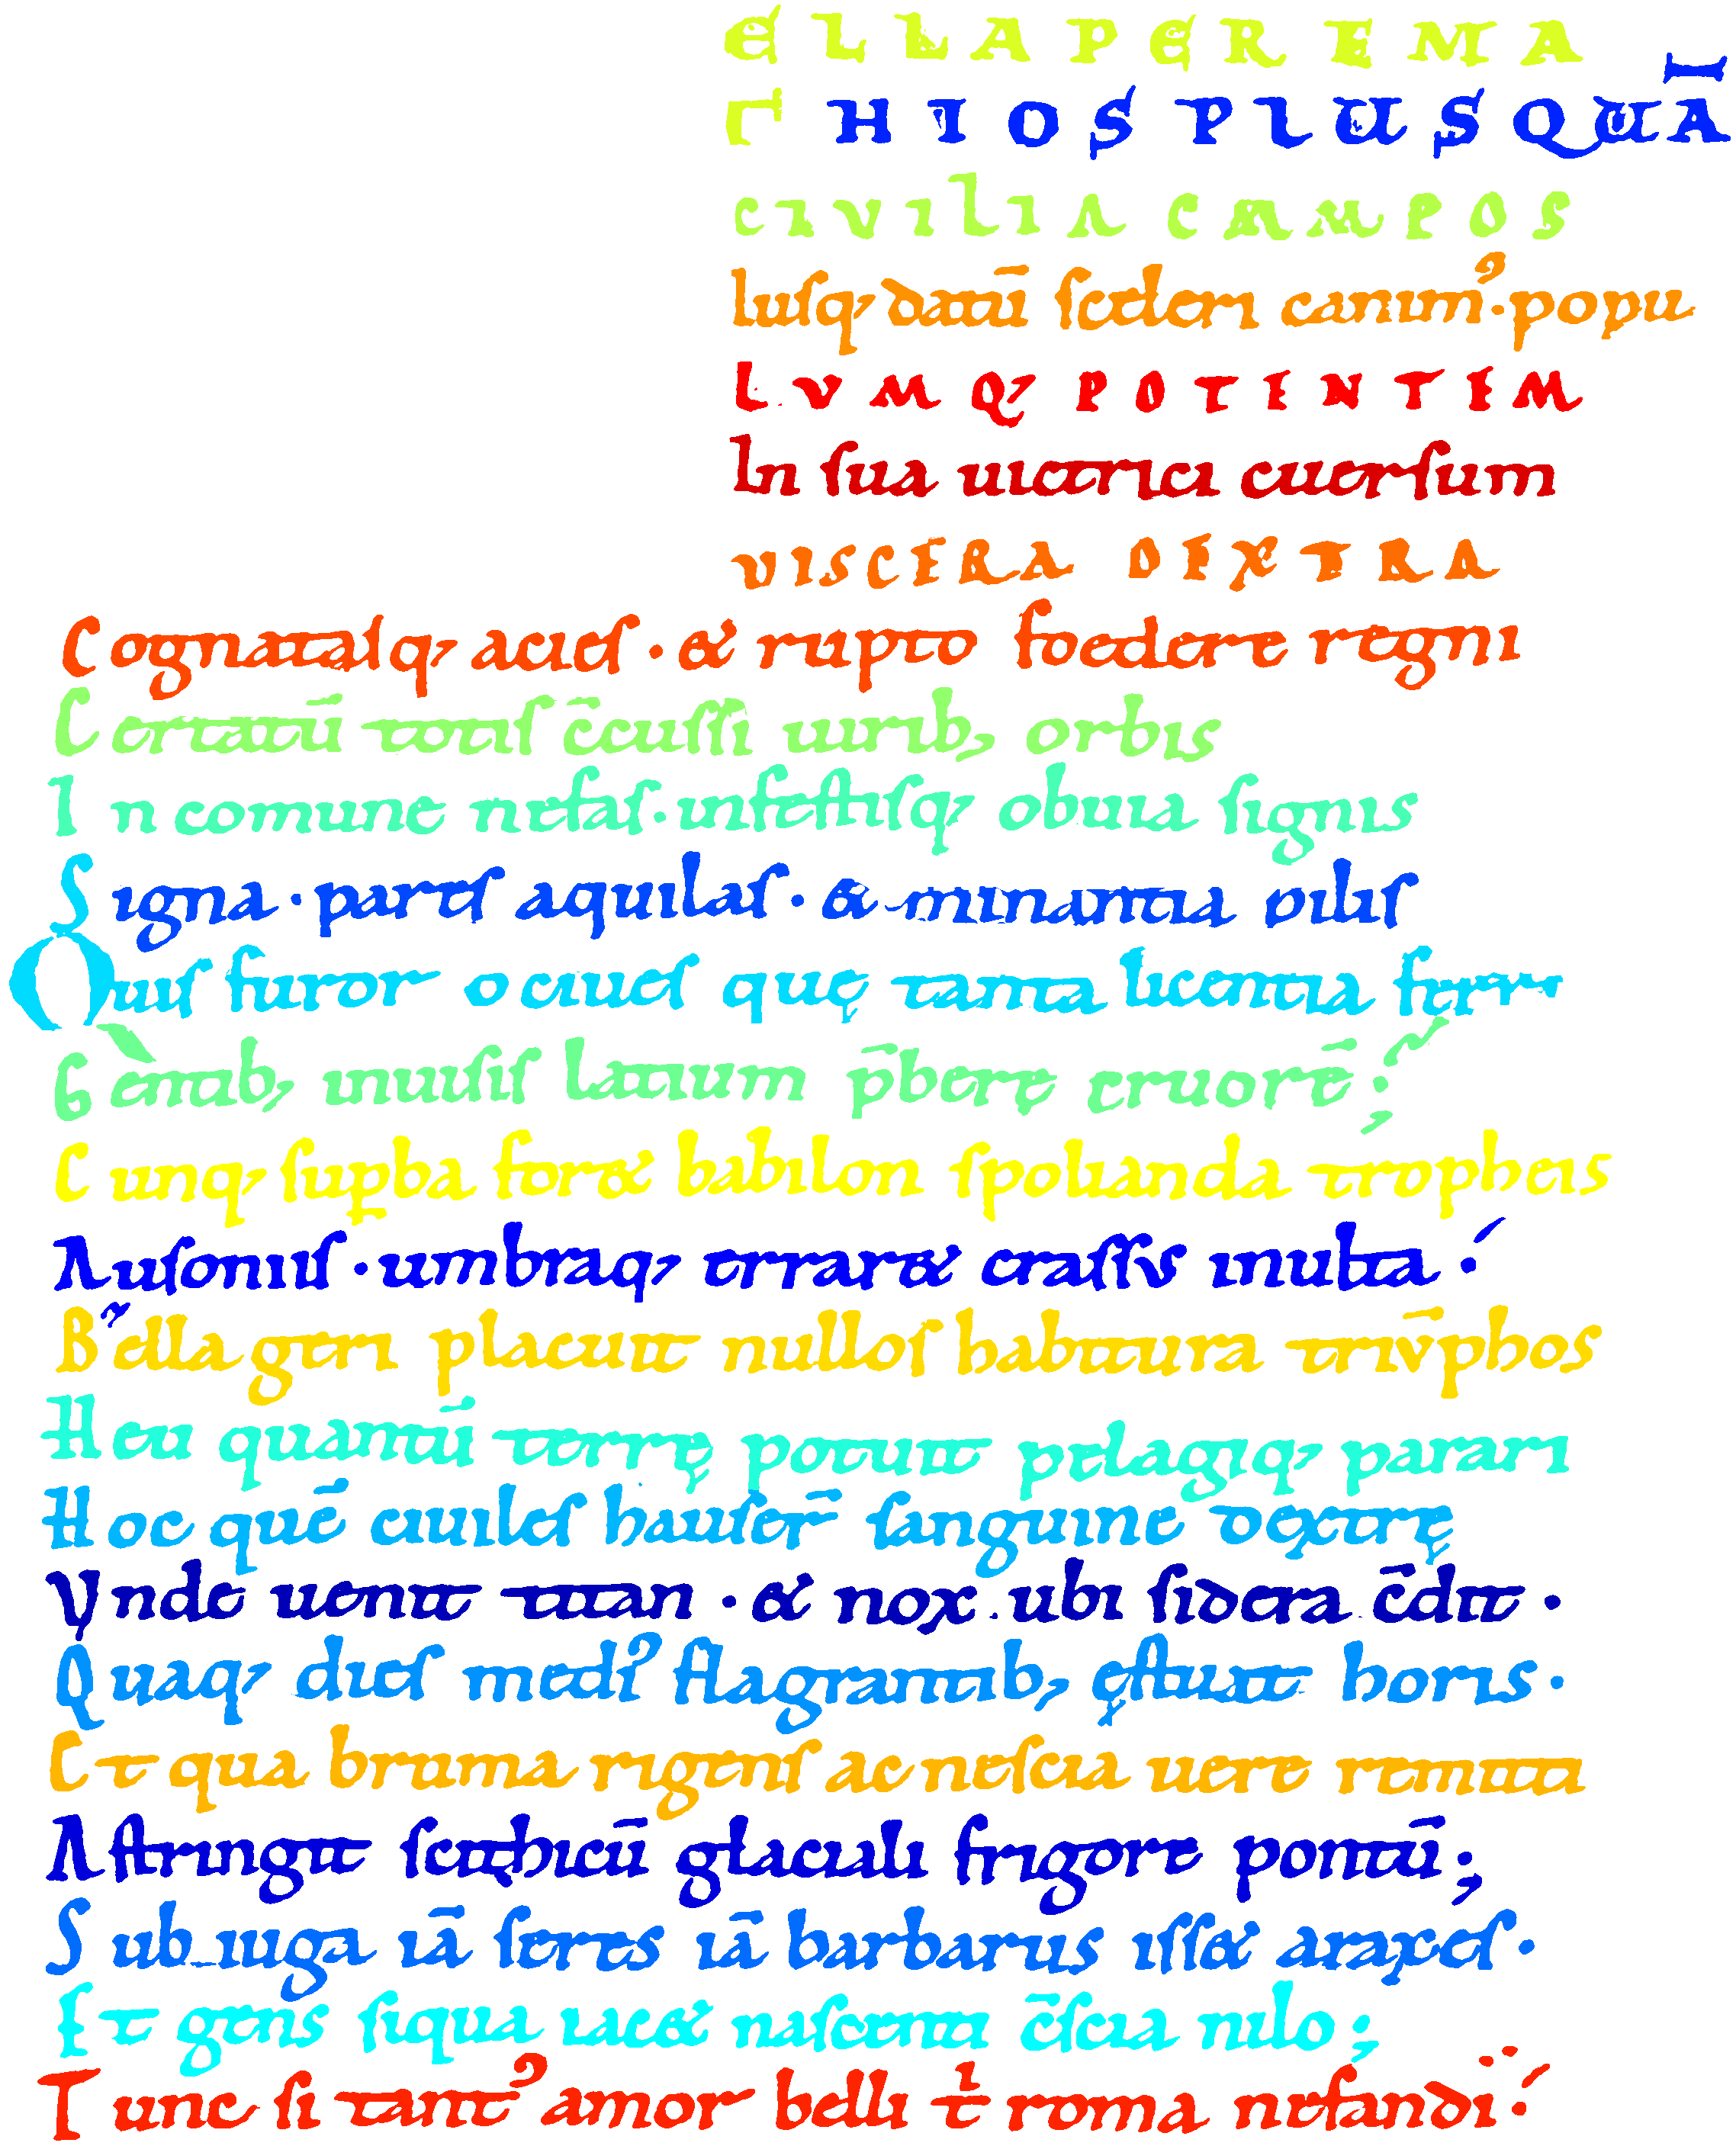 ELLA PER EMA
T HIOS PLUS QUĀ
CIVILIA CAMPOS
Iusq; datū sceleri canim᾽. popu
LVMQ; POTENTEM
In sua uictrici cuersum
VISCERA DEXTRA
Cognatasq; acies · & rupto foedere regni
Certatū totis c̄cussi uirib; orbis
In comune nefas. infestisq; obuia signis
Signa · pares aquilas · & minantia pilis
Quis furor o ciues quę tanta licentia ferri
Gentib; inuisis latium p̄bere cruorē;
Cunq; supba foret babilon spolianda tropheis
Ausoniis · umbraq; erraret crassus inulta·
Bella geri placuit nullos habitura triv̄phos
Heu quantū terrę potuit pelagiq; parari
Hoc quē ciuiles hauser̄ sanguine dextrę
Vnde uenit titan · & nox ubi sidera c̄dit ·
Quaq; dies medi᾽ flagrantib; ęstuat horis ·
Et qua bruma rigens ac nescia uere remitti
Astringit scithicū glaciali frigore pontū;
Sub iuga iā seres iā barbarus isset araxes ·
Et gens siqua iacet nascenti c̄scia nilo;
Tunc si tant᾽ amor belli t̄ roma nefandi·